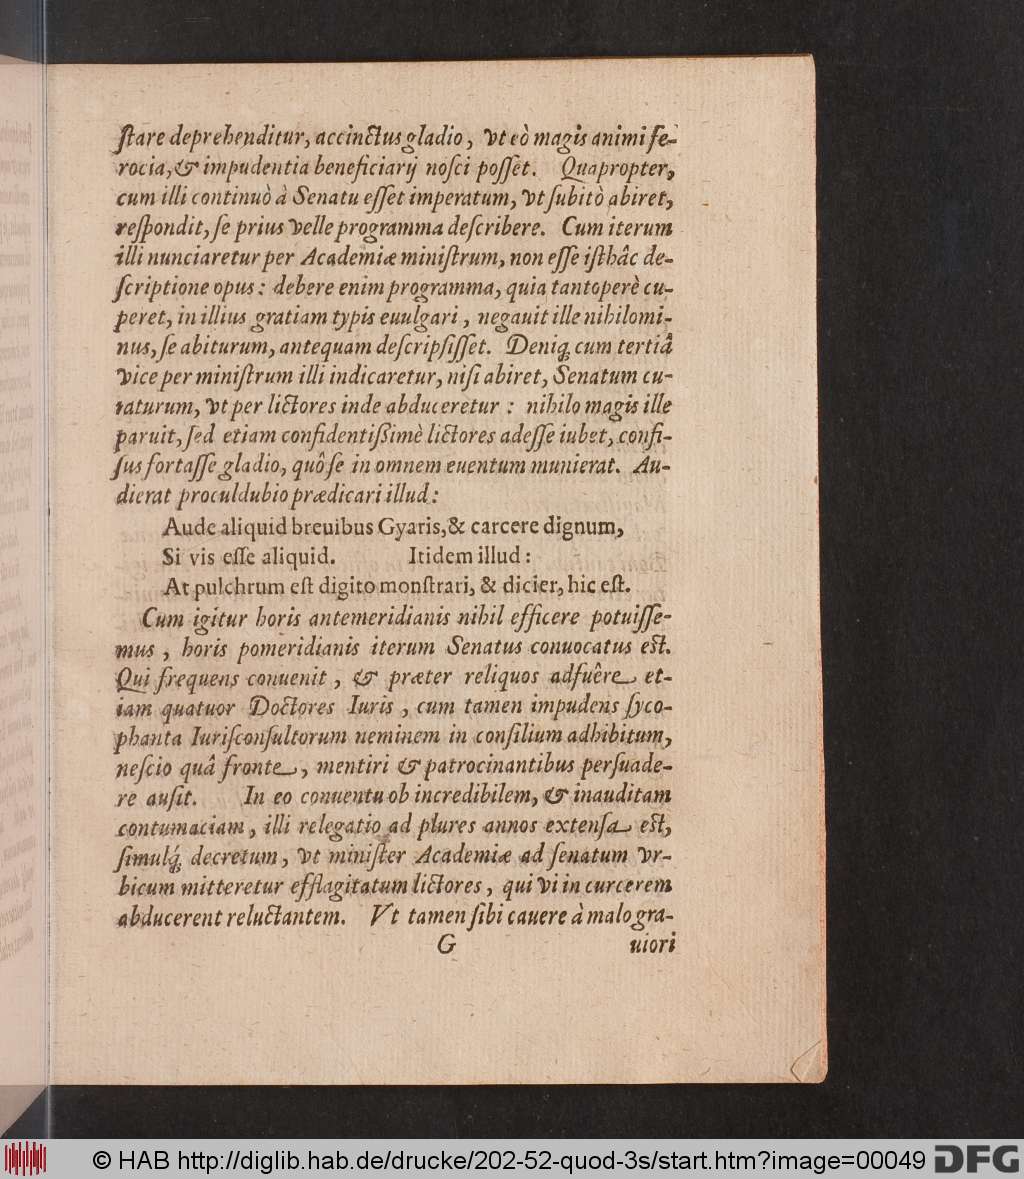 ſtare deprehenditur, accinctus gladio, vt eò magis animi fe-
rocia, & impudentia beneficiarij noſci poſſet. Quapropter,
cum illi continuò à Senatu eſſet imperatum, vt ſubitò abiret,
reſpondit, ſe prius velle programma deſcribere. Cum iterum
illi nunciaretur per Academiæ miniſtrum, non eſſe iſthâc de-
ſcriptione opus: debere enim programma, quia tantoperè cu-
peret, in illius gratiam typis euulgari, negauit ille nihilomi-
nus, ſe abiturum, antequam deſcripſiſſet. Deniq; cum tertiâ
vice per miniſtrum illi indicaretur, niſi abiret, Senatum cu-
raturum, vt per lictores inde abduceretur: nihilo magis ille
paruit, ſed etiam confidentiſſimè lictores adeſſe iubet, confi-
ſus fortaſſe gladio, quô ſe in omnem euentum munierat. Au-
dierat proculdubio prædicari illud:
Aude aliquid breuibus Gyaris, & carcere dignum,
Si vis eſſe aliquid. Itidem illud:
At pulchrum eſt digito monſtrari, & dicier, hic eſt.
Cum igitur horis antemeridianis nihil efficere potuiſſe-
mus, horis pomeridianis iterum Senatus conuocatus eſt.
Qui frequens conuenit, & præter reliquos adfuêre et-
iam quatuor Doctores Iuris, cum tamen impudens ſyco-
phanta Iuriſconſultorum neminem in conſilium adhibitum,
neſcio quâ fronte, mentiri & patrocinantibus perſuade-
re auſit. In eo conuentu ob incredibilem, & inauditam
contumaciam, illi relegatio ad plures annos extenſa eſt,
ſimulq́; decretum, vt miniſter Academiæ ad ſenatum vr-
bicum mitteretur efflagitatum lictores, qui vi in curcerem
abducerent reluctantem. Vt tamen ſibi cauere à malo gra-
G uiori
© HAB http://diglib.hab.de/drucke/202-52-quod-3s/start.htm?image=00049 DFG